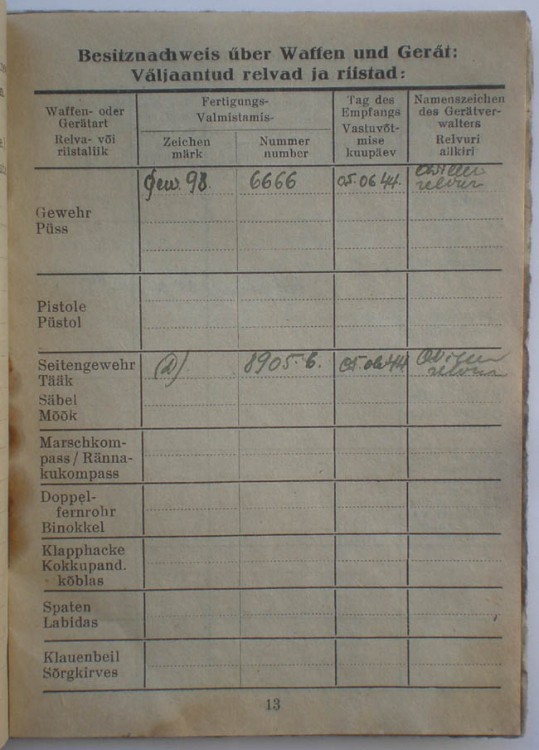 Besitznachweis über Waffen und Gerät:
Väljaantud relvad ja riistad:
Waffen- oder
Gerätart
Relva- või
riistaliik
Fertigungs-
Valmistamis-
Zeichen
märk
Nummer
number
Tag des
Empfangs
Vastuvõt-
mise
kuupäev
Namenszeichen
des Gerätver-
walters
Relvuri
allkiri
Gewehr
Püss
Gew. 98. 6666 05.06.44.
relvur
Pistole
Püstol
Seitengewehr
Tääk
Säbel
Mõõk
8905.b. 05.06.44
relvur
Marschkom-
pass / Ränna-
kukompass
Doppel-
fernrohr
Binokkel
Klapphacke
Kokkupand.
kõblas
Spaten
Labidas
Klauenbeil
Sõrgkirves
13